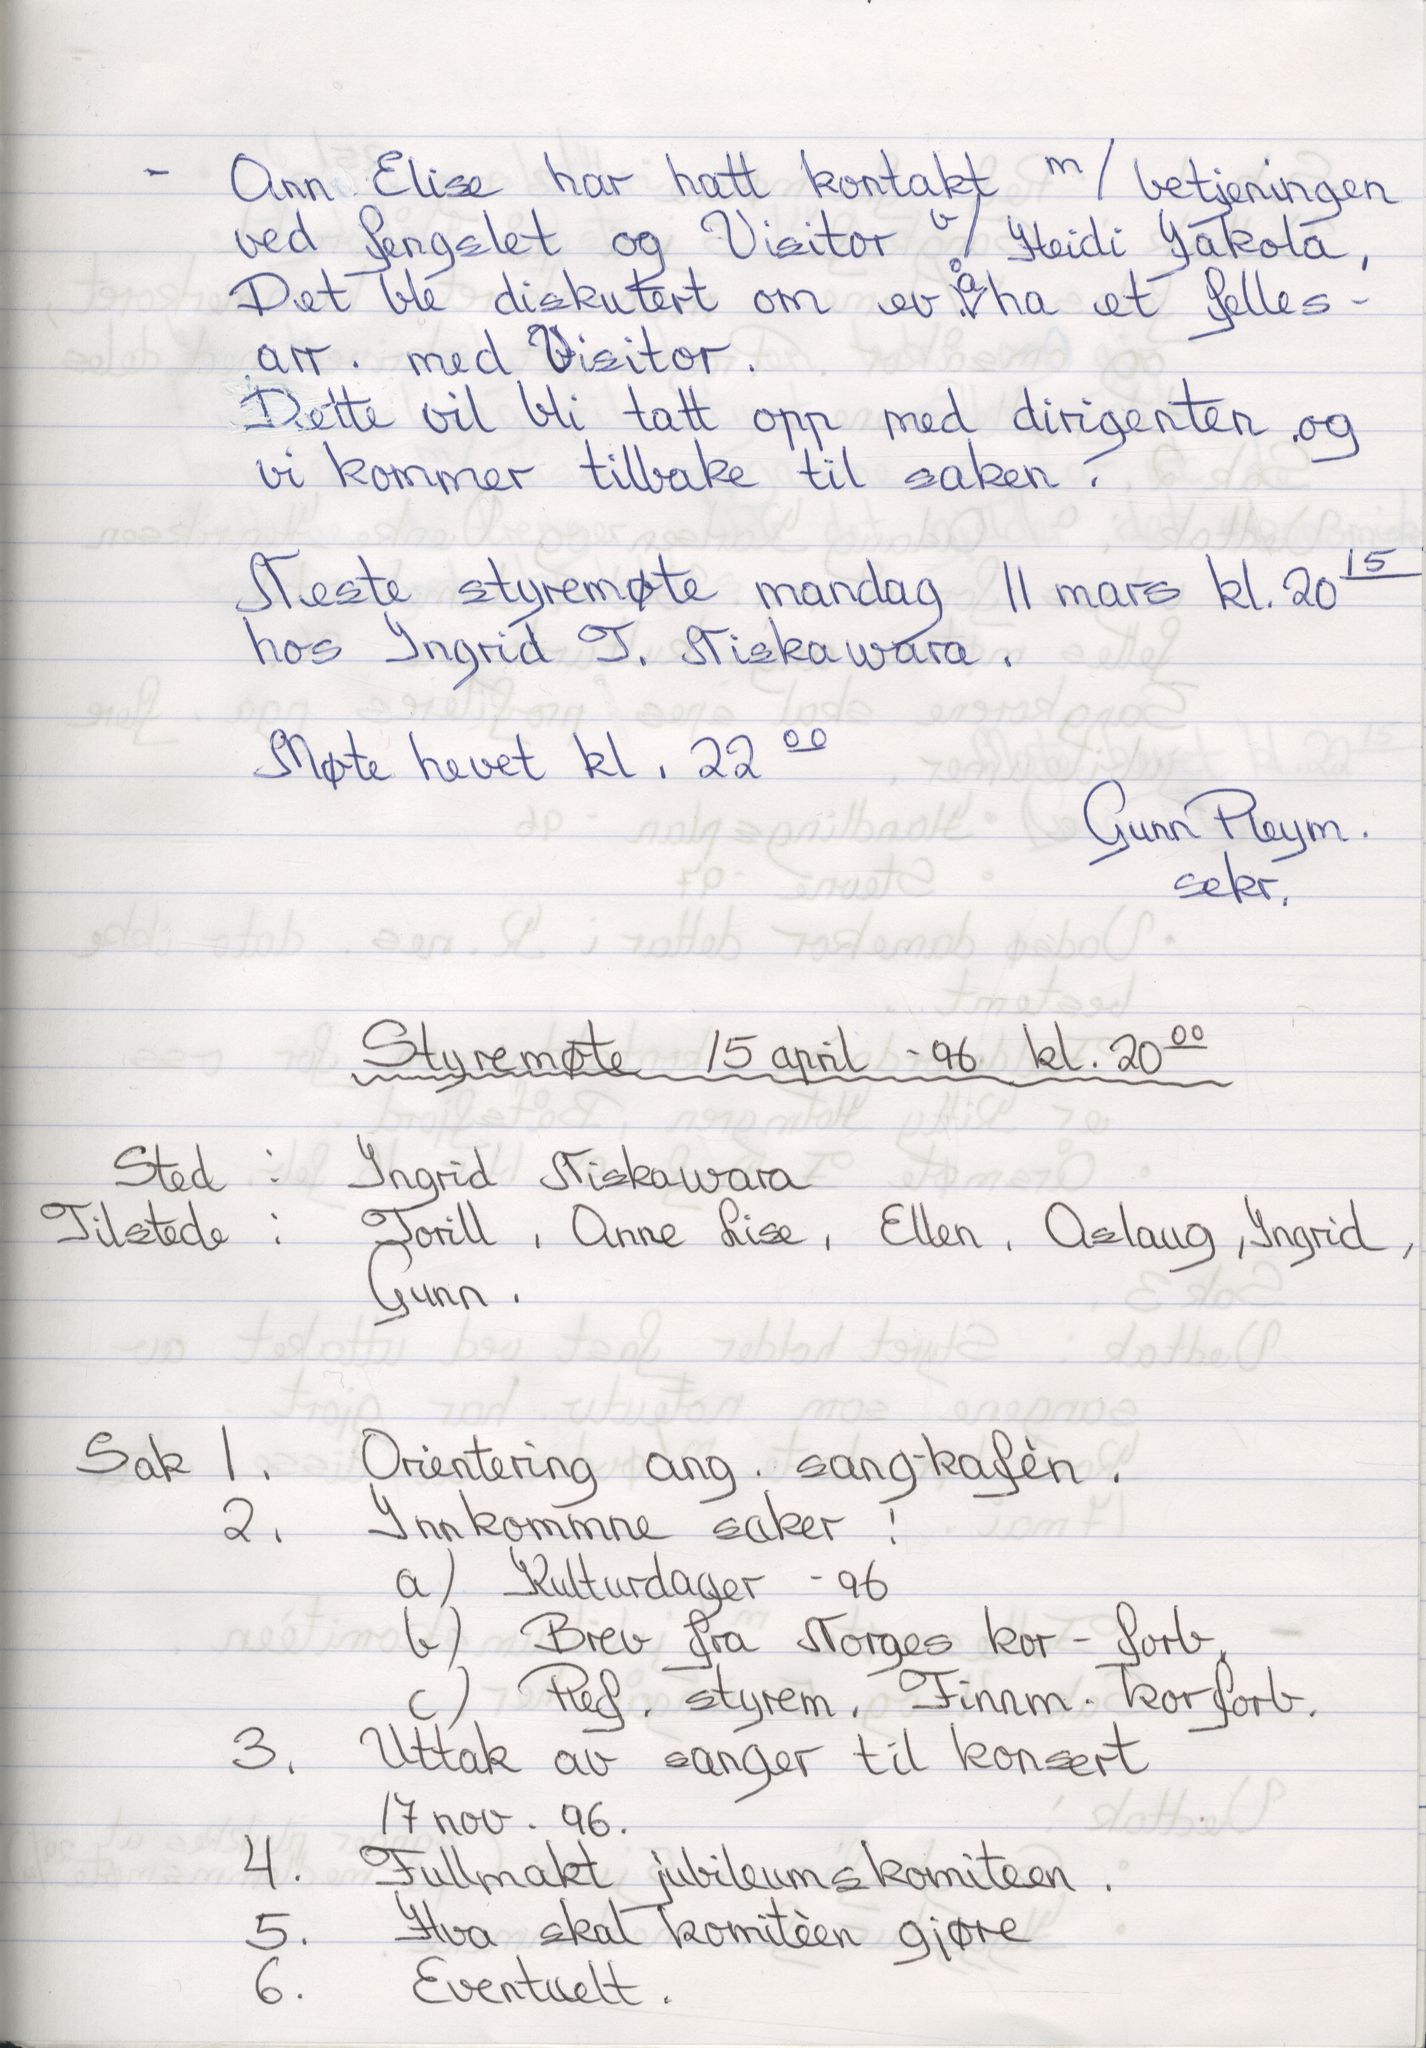 - Ann Elise har hatt kontakt m/ betjeningen
ved fengslet og Visitor v/ Heidi Jakola.
Det ble diskutert om ev. å ha et felles-
arr. med Visitor.
Dette vil bli tatt opp med dirigenten og
vi kommer tilbake til saken.
Neste styremøte mandag 11 mars kl. 20 15
hos Ingrid T. Niskawara.
Møte hevet kl. 22 00
Gunn Pleym.
sekr.
Styremøte 15 april -96 kl. 20 00
Sted : Ingrid Niskawara
Tilstede : Torill, Anne Lise, Ellen, Aslaug, Ingrid,
Gunn.
Sak 1. Orientering ang. sang-kafèn.
2. Innkommne saker :
a) Kulturdager -96
b) Brev fra Norges kor-forb.
c) Ref. styrem. Finnm. korforb.
3. Uttak av sanger til konsert
17 nov. 96.
4. Fullmakt jubileumskomiteen.
5. Hva skal komitèen gjøre
6. Eventuelt.